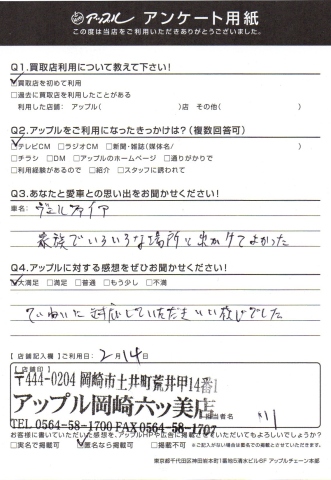 アップル アンケート用紙
この度は当店をご利用いただきありがとうございました。
Q1.買取店利用について教えて下さい!
☑買取店を初めて利用
□過去に買取店を利用したことがある
利用した店舗: アップル( )店 その他( )
Q2.アップルをご利用になったきっかけは?(複数回答可)
☑テレビCM □ラジオCM □新聞・雑誌(媒体名/ )
□チラシ □DM □アップルのホームページ □通りがかりで
□利用経験があるので □紹介 □スタッフに誘われて
Q3.あなたと愛車との思い出をお聞かせください!
車名: ヴェルファイア
家族でいろいろな場所に出かけてよかった
Q4.アップルに対する感想をぜひお聞かせください!
☑大満足 □満足 □普通 □もう少し □不満
ていねいに対応していただき いい でした
【店舗記入欄】ご利用日: 2月14日
【店舗印】
〒444-0204 岡崎市土井町荒井甲14番1
アップル岡崎六ッ美店
TEL 0564-58-1700 FAX 0564-58-1707
担当者名
お客様に書いていただいた感想を、アップルHPや広告に掲載させていただいてもよろしいでしょうか?
□実名で掲載可 ☑匿名なら掲載可 □掲載不可 ※ご記入がない場合は匿名での掲載とさせていただきます。
東京都千代田区神田岩本町1番地5清水ビル6F アップルチェーン本部